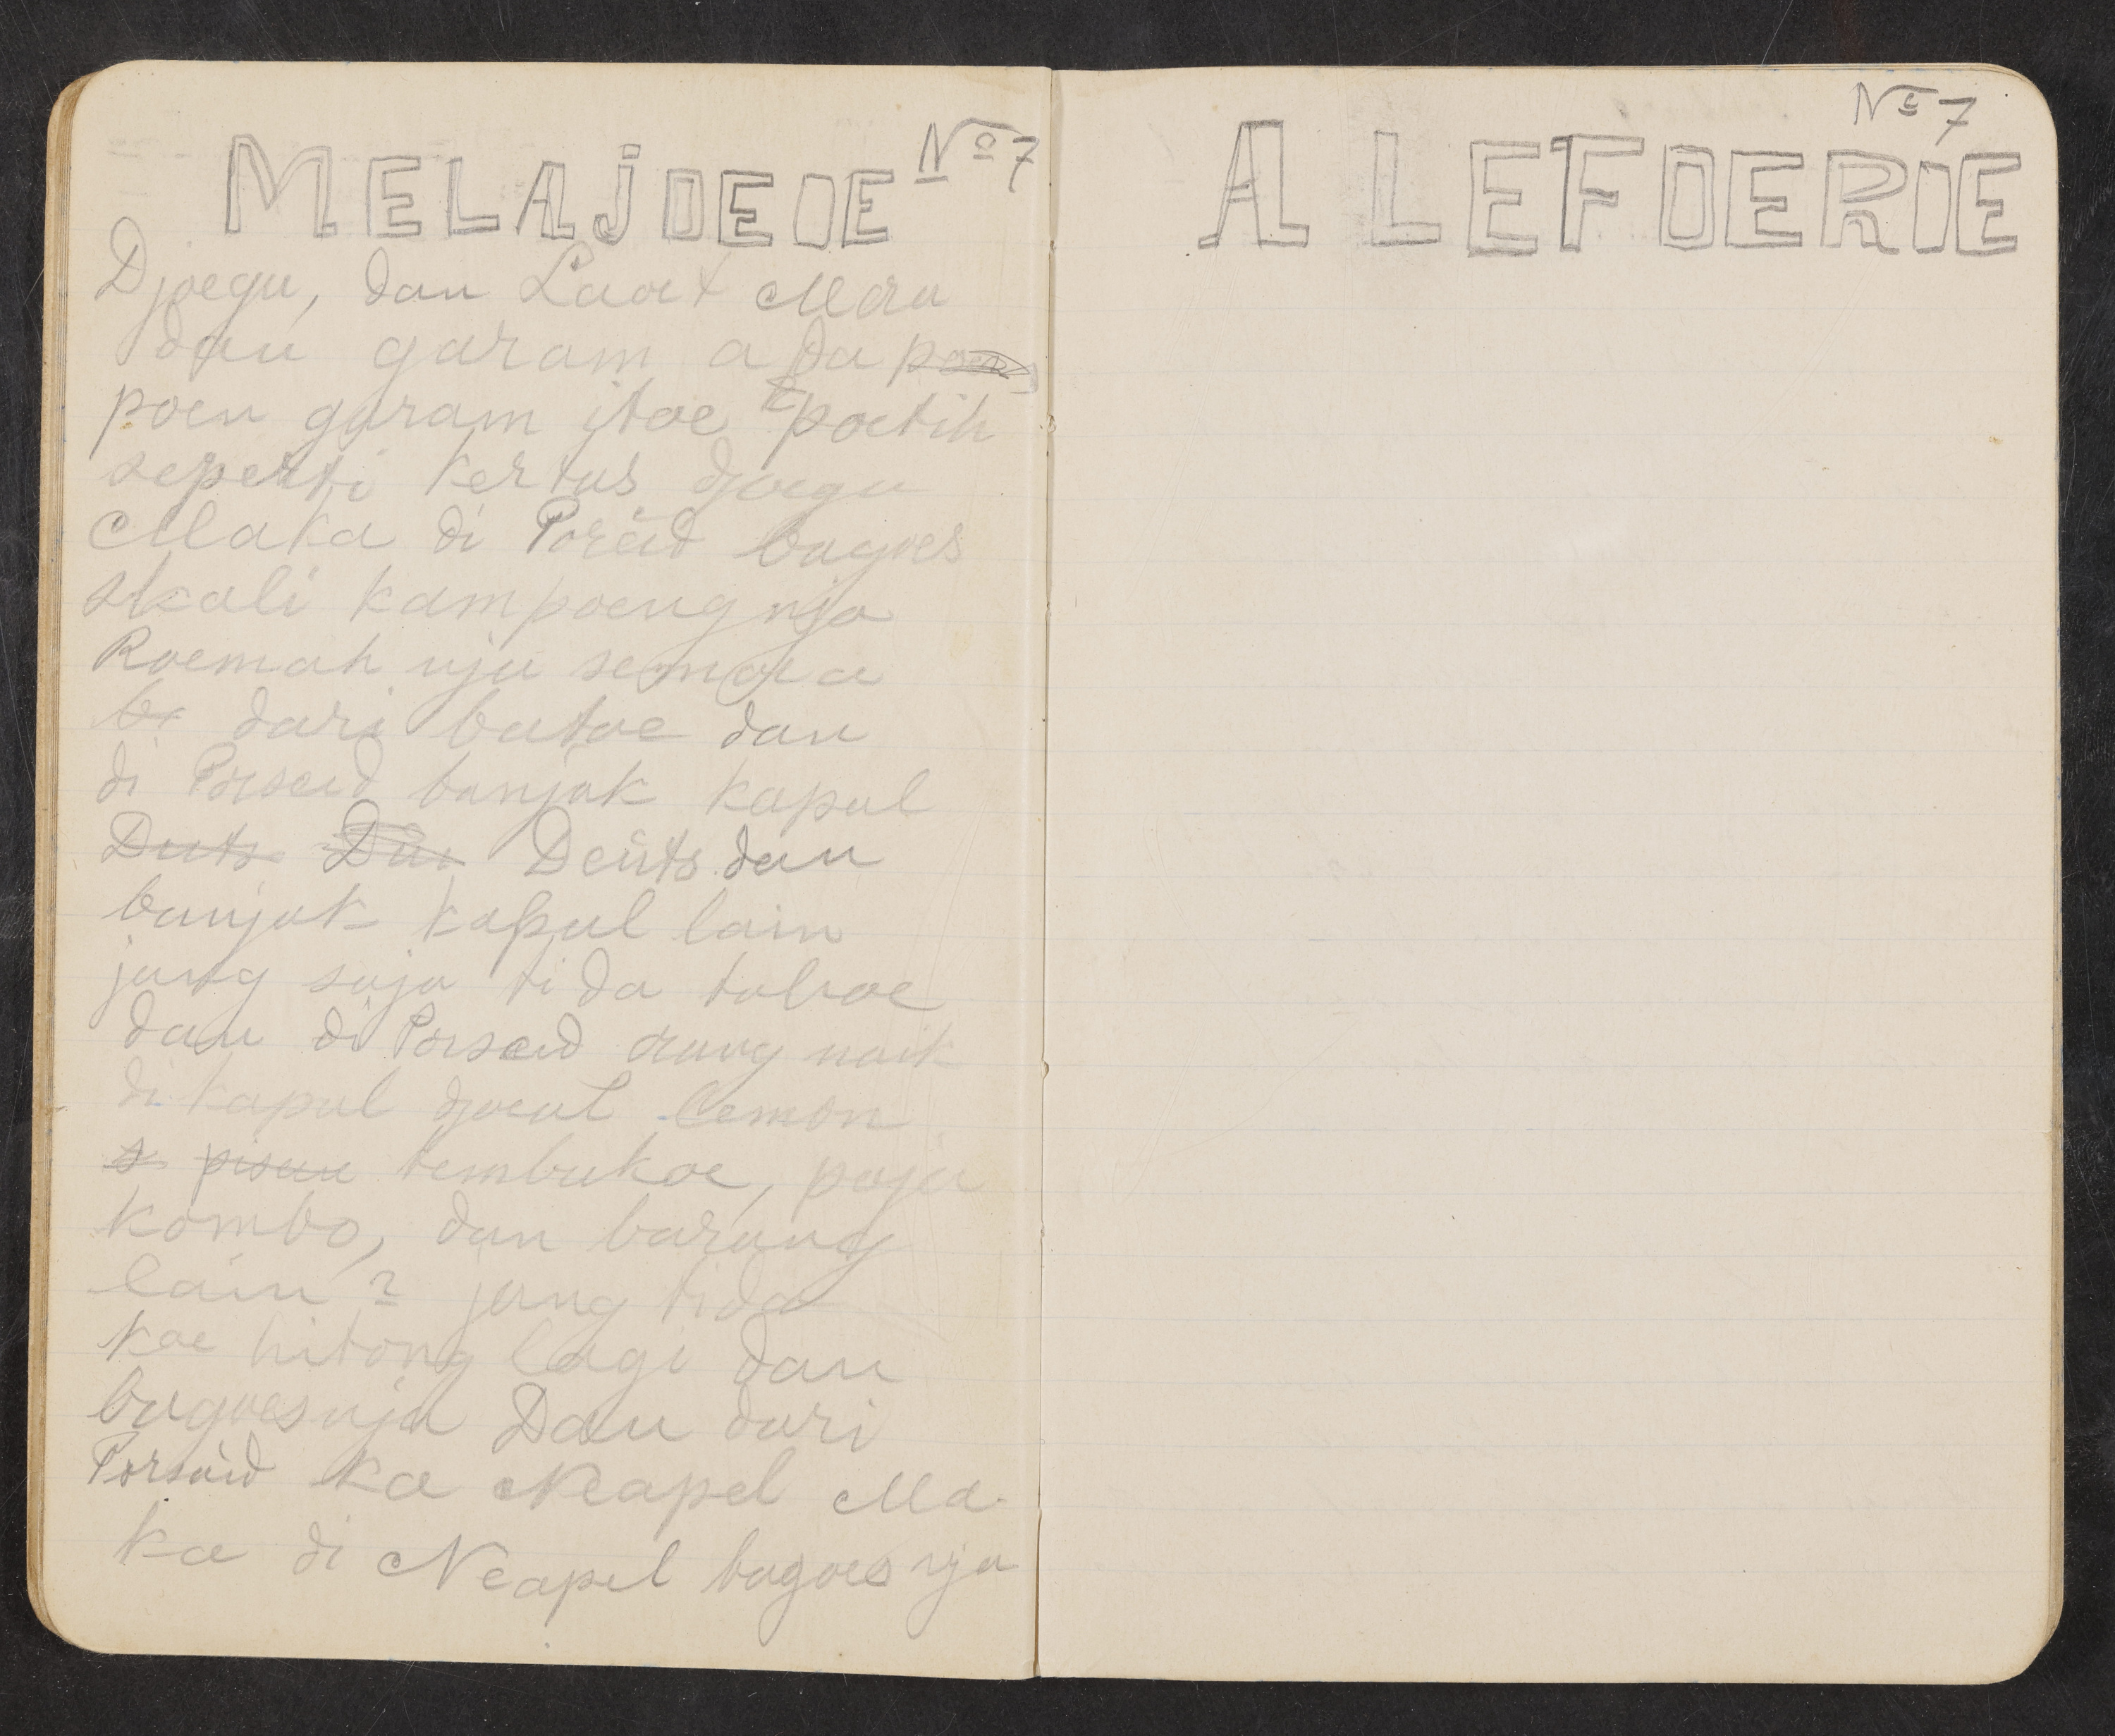 MELAJOEOE No 7
Djoega, dan Laoet Mera
dan garam ada poen
poen garam itoe poetih
seperti kertas djoega
Maka di Poreid bagoes
skali kampoengnja
Roemah nja semoea
be dari batoe dan
di Porseid banjak kapal
Duts Dui Deuts dan
banjak kapal lain
jang saja tida tahoe
dan di Porseid orang naik
di kapal djoeal lemon
s pisan tembakoe, paja
kombo, dan barang
lain 2 jang tida
koe hitong lagi dan
bagoesnja Dan dari
Porsaid ka Neapel Ma
ka di Neapel bagoes nja
No 7
ALEFOEROE